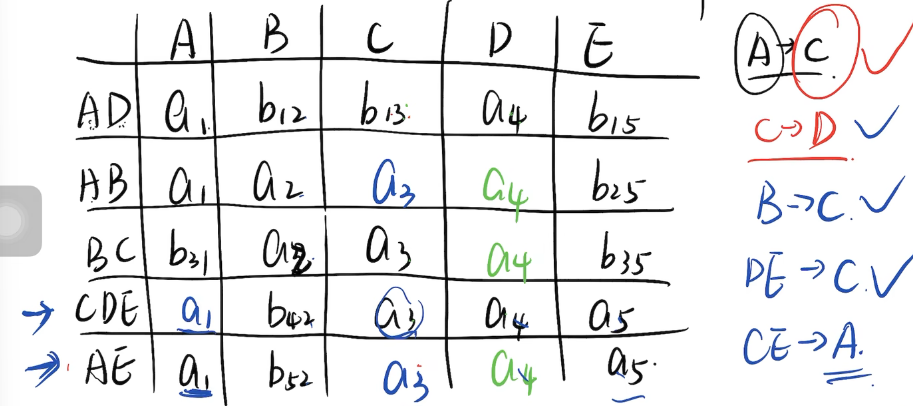 A B C D E
AD a₁ b₁₂ b₁₃ a₄ b₁₅
AB a₁ a₂ a₃ a₄ b₂₅
BC b₃₁ a₂ a₃ a₄ b₃₅
→ CDE a₁ b₄₂ a₃ a₄ a₅
→ AE a₁ b₅₂ a₃ a₄ a₅
A→C ✓
C→D ✓
B→C ✓
DE→C ✓
CE→A